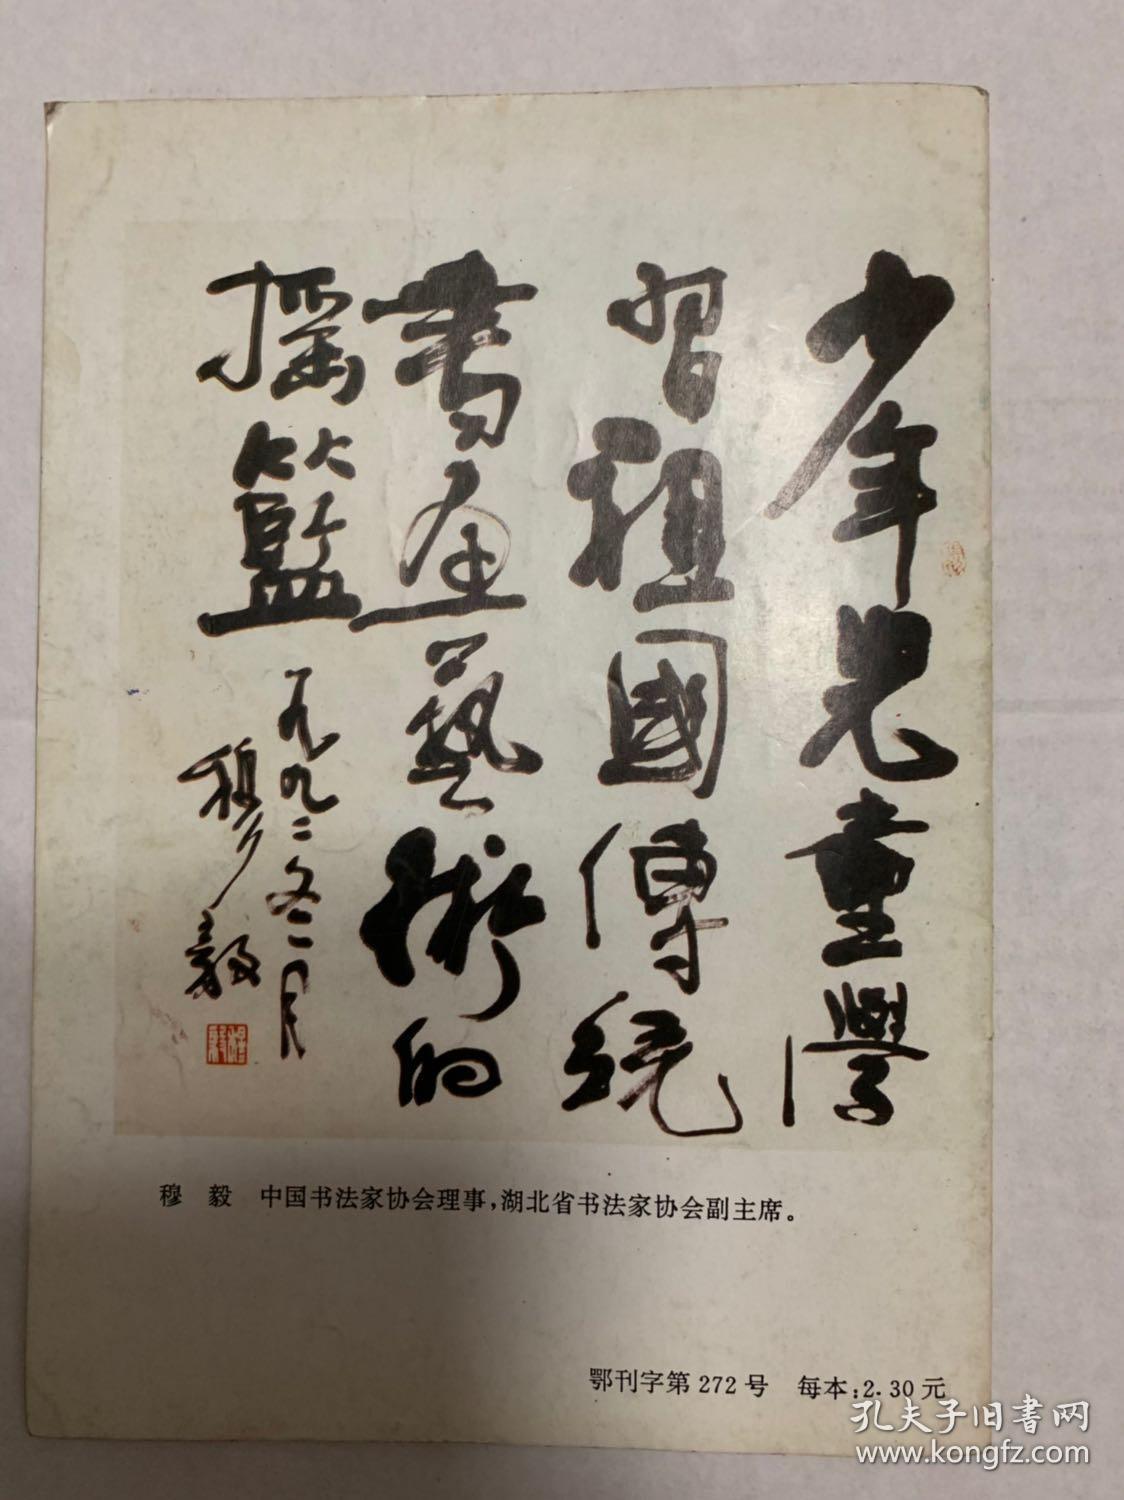 少年児童學
習祖國傳統
書画藝術的
摇籃
一九九二冬二月
穆毅
穆毅 中国书法家协会理事,湖北省书法家协会副主席。
鄂刊字第272号 每本:2.30元
孔夫子旧书网
www.kongfz.com